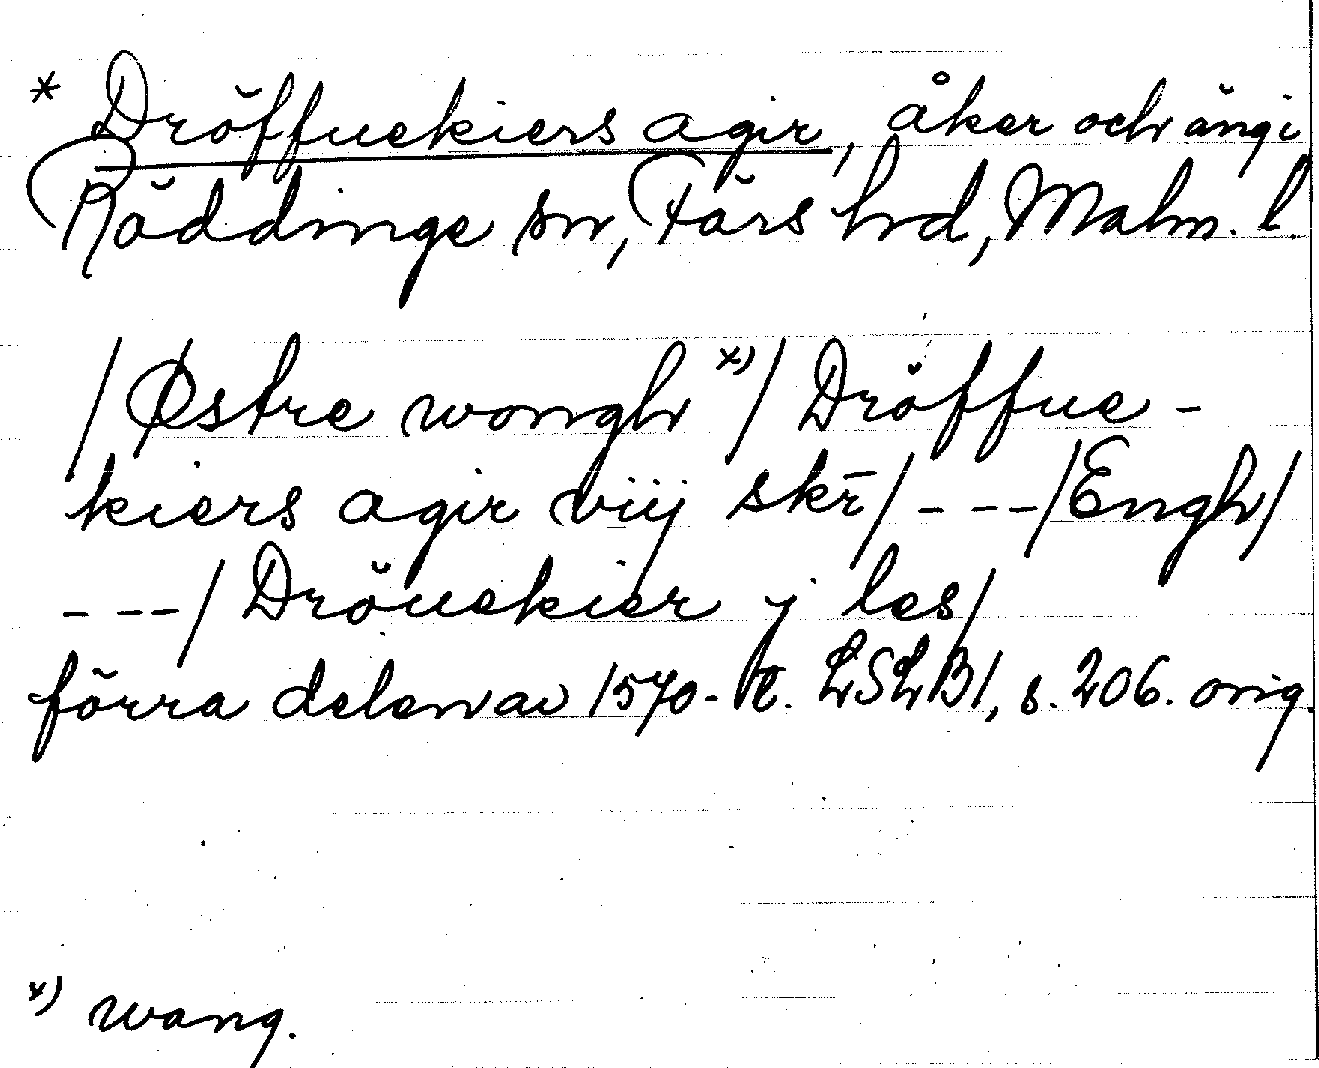 * Dröffuekiers agir, åker och äng i
Röddinge sn, Färs hd, Malm. l.
/Østre wongh x)/ Dröffue -
kiers agir viij skr̄/ - - -/Engh/
- - -/ Dröuekier j les/
förra delen av 1570-t. LSLB1, s. 206. orig.
x) wang.